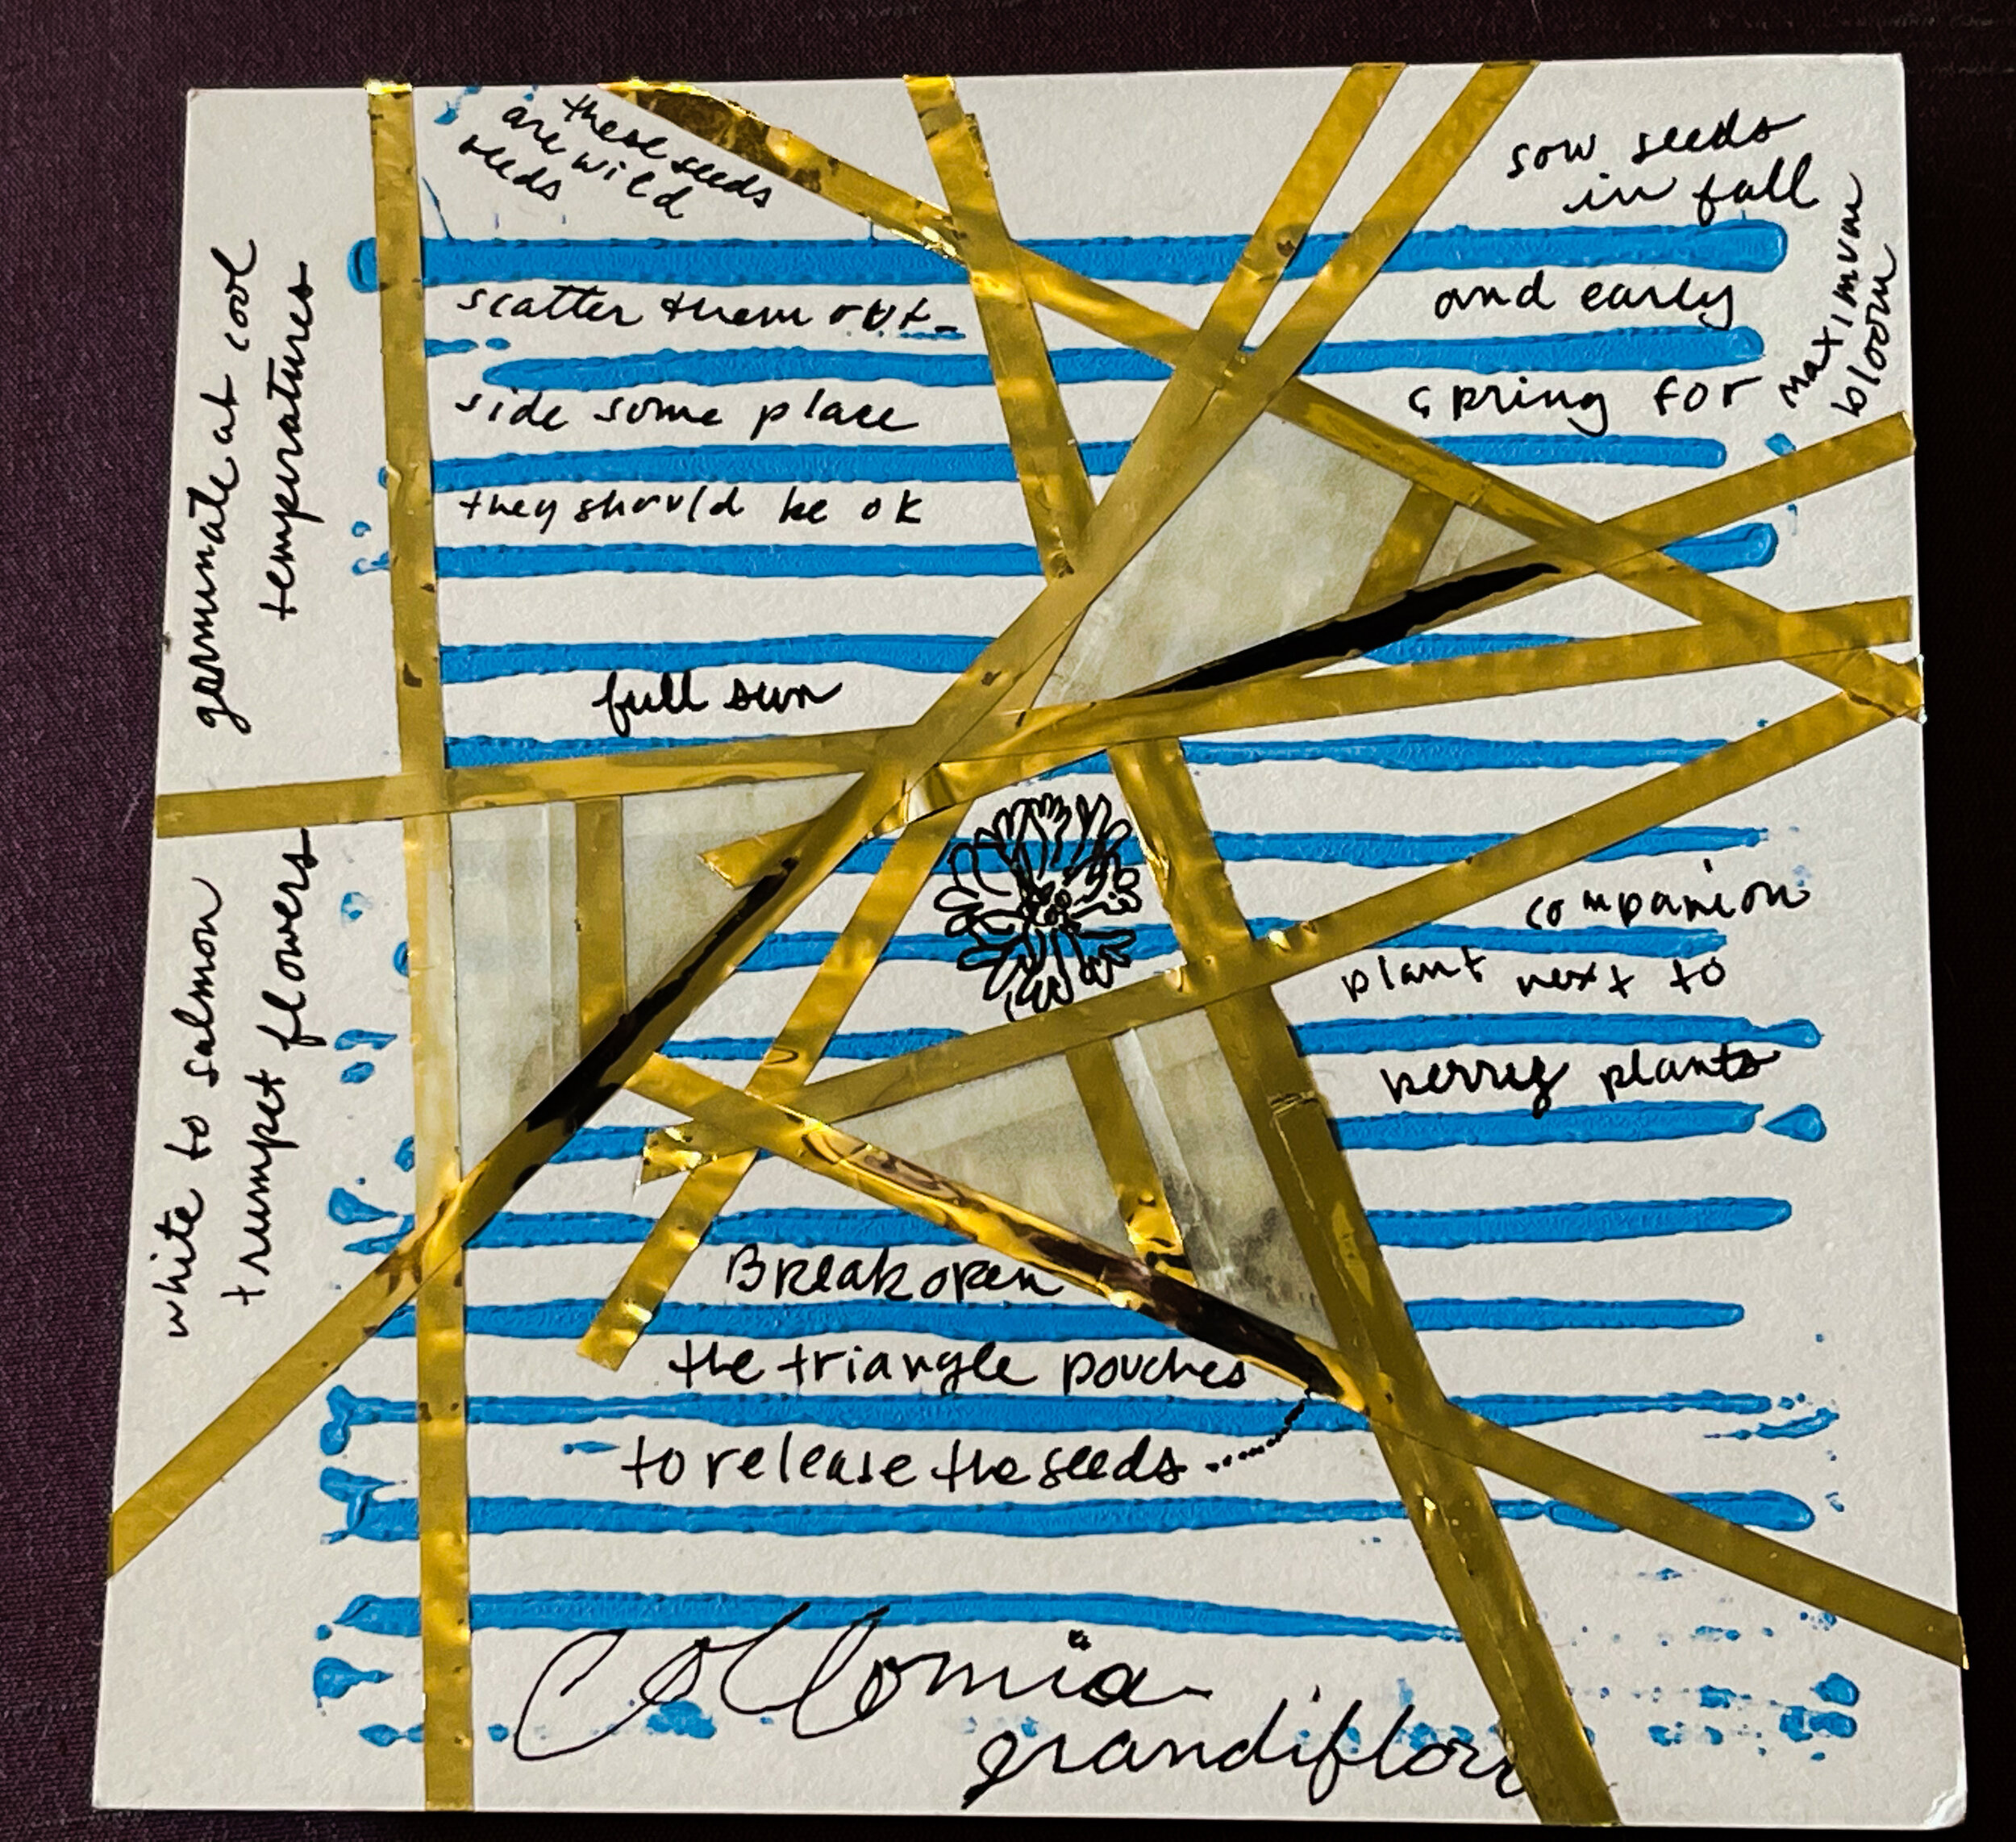 these seeds
are wild
seeds
scatter them out-
side some place
they should be ok
full sun
sow seeds
in fall
and early
spring for
maximum
bloom
germinate at cool
temperatures
white to salmon
trumpet flowers
companion
plant next to
berry plants
Break open
the triangle pouches
to release the seeds
Collomia
grandiflora